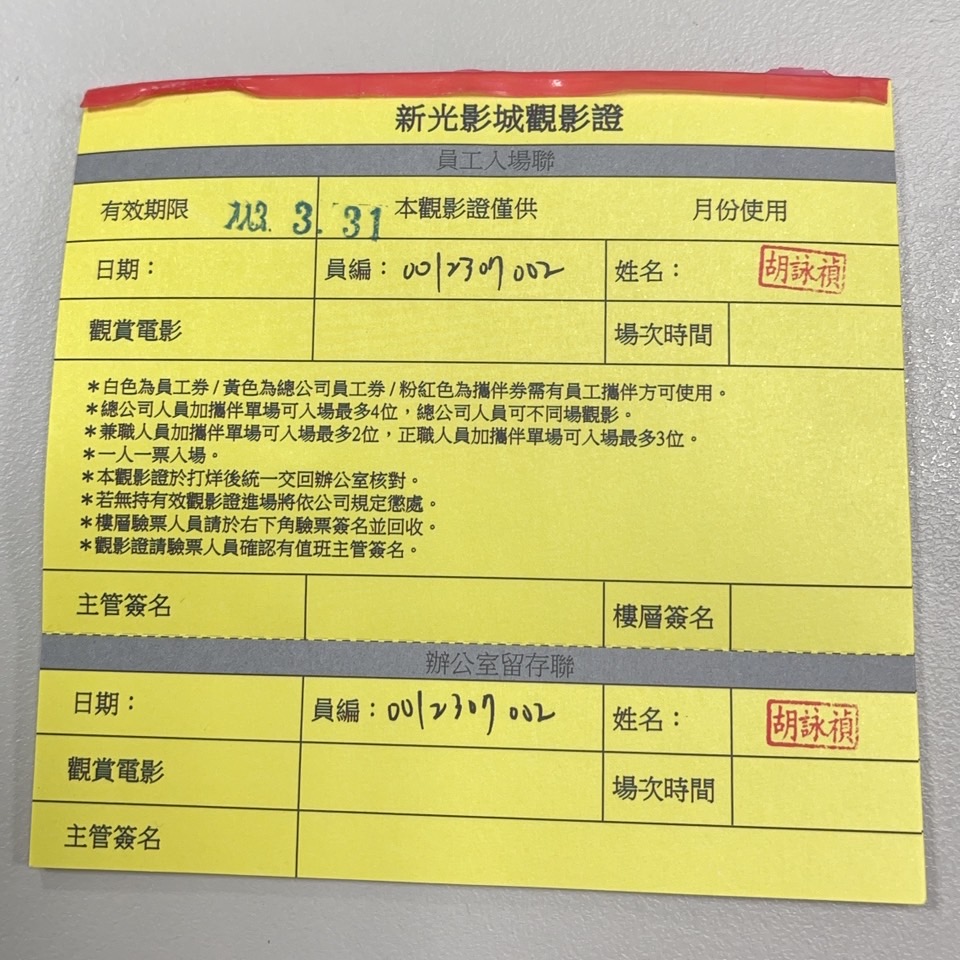 新光影城觀影證
員工入場聯
有效期限 113. 3. 31 本觀影證僅供 月份使用
日期： 員編：0012307002 姓名： 胡詠禎
觀賞電影 場次時間
＊白色為員工券/黃色為總公司員工券/粉紅色為攜伴券需有員工攜伴方可使用。
＊總公司人員加攜伴單場可入場最多4位，總公司人員可不同場觀影。
＊兼職人員加攜伴單場可入場最多2位，正職人員加攜伴單場可入場最多3位。
＊一人一票入場。
＊本觀影證於打烊後統一交回辦公室核對。
＊若無持有效觀影證進場將依公司規定懲處。
＊樓層驗票人員請於右下角驗票簽名並回收。
＊觀影證請驗票人員確認有值班主管簽名。
主管簽名 樓層簽名
辦公室留存聯
日期： 員編：0012307002 姓名： 胡詠禎
觀賞電影 場次時間
主管簽名